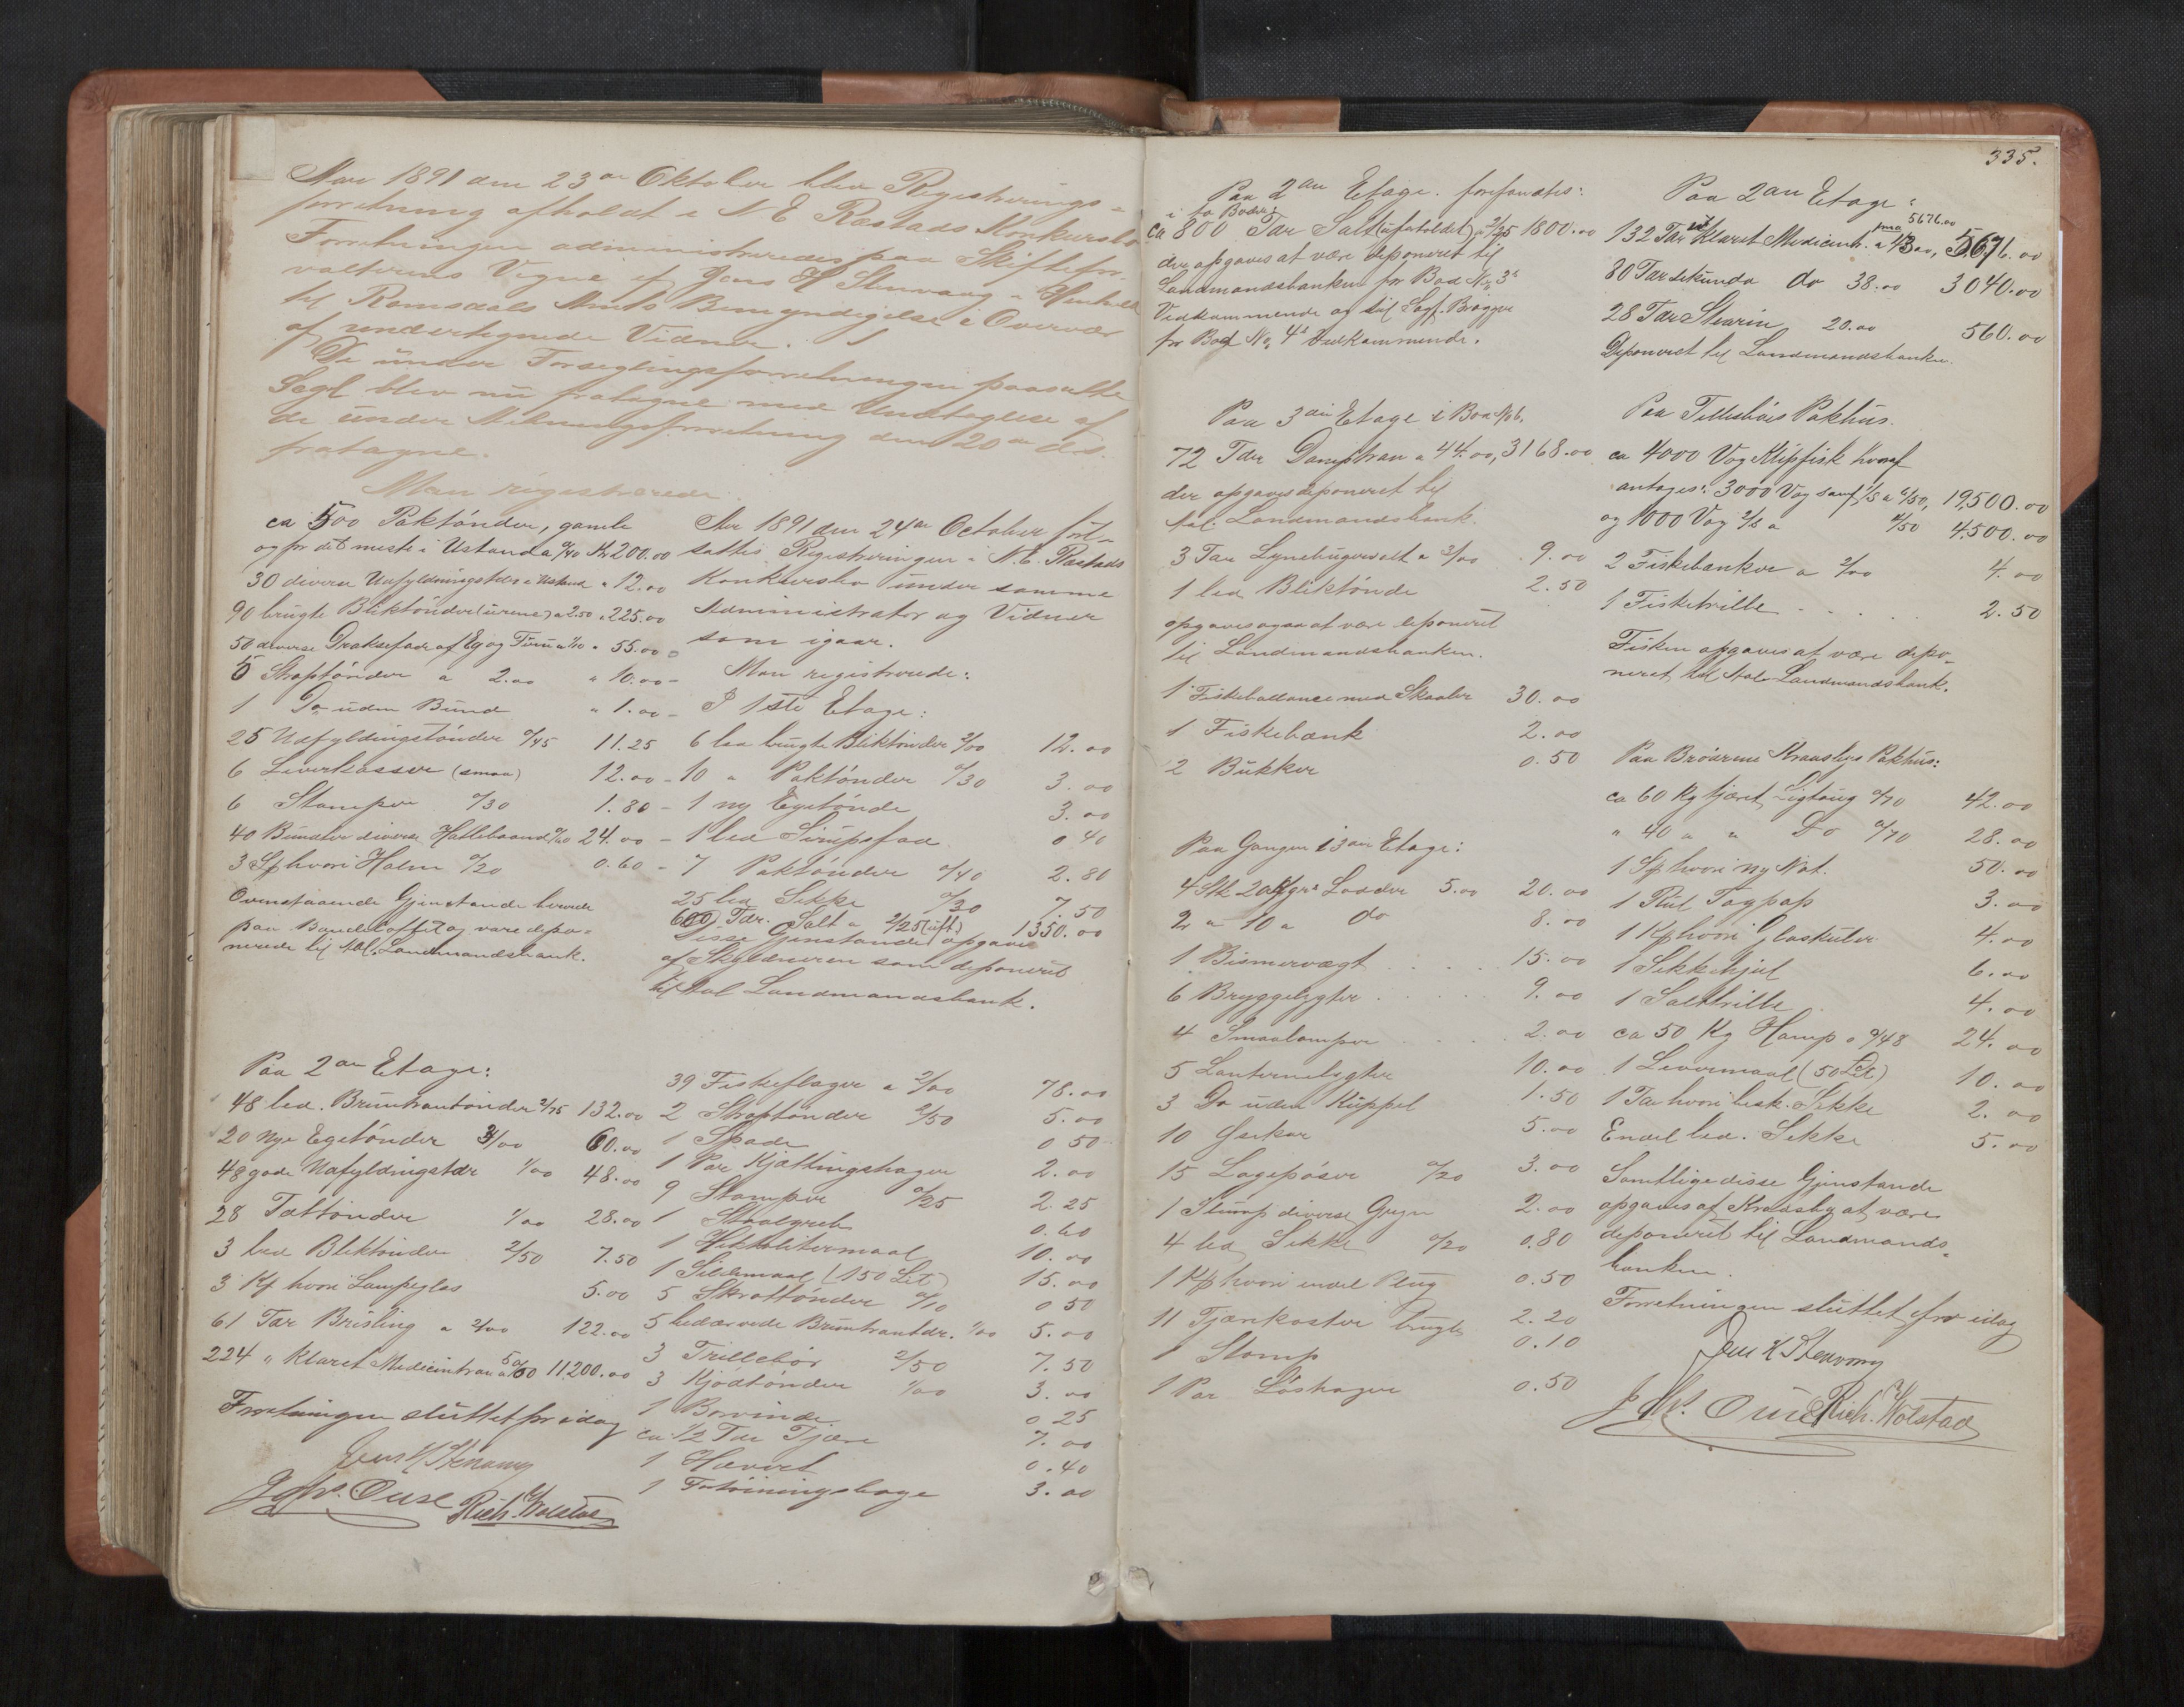 Aar 1891 den 23de Oktober blev Registrerings-
forretning afholdt i N E Rastads Konkursbo
Forretningen administreredes paa Skiftefor-
valterens Vegne af Jens H Stenvaag i Henhold
til Romsdals Amts Bemyndigelse i Overvær
af undertegnede Vidner.
De under Forseglingsforretningen paasatte
Segl blev nu fratagne med Undtagelse af
de under Melningsforretning den 20de ds.
fratagne.
Man registrerede.
ca 500 Paktönder, gamle
og for det meste i Ustand a 0/40 Kr 200.00
30 diverse Uafyldningstdr i Ustand " 12.00
90 brugte Bliktönder (urene) a 2.50 " 225.00
50 diverse Draksefade af Eg og Furu a 1/10 " 55.00
5 Straptönder a 2.00 " 10.00 -
1 Do uden Bund " 1.00 -
25 Uafyldingstönder 0/45 11.25
6 Leverkasser (smaa) 12.00 -
6 Stamper 0/30 1.80 -
40 Bundter diverse Hallebaand 0/60 24.00 -
3 Sp hvori Halm 0/20 0.60 -
Ovenstaaende Gjenstande beroede
paa Bandeloftet og vare depo-
nerede til Aal. Landmandsbank.
Paa 2den Etage:
48 bed. Bruntrantönder 2/75 132.00
20 nye Egetönder 3/00 60.00
48 gode Uafyldingstdr 1/00 48.00
28 Tættönder 1/00 28.00
3 bed Bliktönder 2/50 7.50
3 Kp hvori Lampeglas 5.00
61 Tdr Brisling a 2/00 122.00
224 " klaret Medicintran a 50/00 11200.00
Forretningen sluttet for idag
Jens H Stenvaag
Johs. Ouse Rich. Wolstad
Aar 1891 den 24de October fort-
sattes Registreringen i N. E. Rastads
Konkursbo under samme
Administrator og Vidner
som igaar.
Man registrerede:
I 1ste Etage:
6 bed brugte Bliktönder 2/00 12.00
10 " Paktönder 0/30 3.00
1 ny Egetönde 3.00
1 bed Sirupsfad 0 40
7 Paktönder 0/40 2.80
25 bed Sekke 0/30 7.50
600 Tdr. Salt a 2/25 (uft) 1350.00
Disse Gjenstande opgaves
af Skyldneren som deponeret
til Aal Landmandsbank.
39 Fiskeflager a 2/00 78.00
2 Straptönder 2/50 5.00
1 Spade 0 50
1 Par Kjættingshager 2.00
9 Stamper 0/25 2.25
1 Staalgreb 0.60
1 Hektolitermaal 10.00
1 Sildemaal (150 Lit) 15.00
5 Skrottönder 0/10 0 50
5 bedærvede Bruntrantdr. 1/00 5.00
3 Trillebör 2/50 7.50
3 Kjödtönder 1/00 3.00
1 Borvinde 0 25
ca 1/2 Tde Tjære 7.00
1 Hævert 0.40
1 Fortöiningshage 3.00
335.
Paa 2den Etage. forefandtes:
i to Boder
ca 800 Tdr Salt (ufortoldet) a 2/25 1800.00
der opgaves at være deponeret til
Landmandsbanken for Bod No 3s
Vedkommende og til Sogf. Brögger
for Bod No 4s Vedkommende.
Paa 3die Etage i Bod No 6.
72 Tdr Damptran a 44.00, 3168.00
der opgaves deponeret til
Aal. Landmandsbank.
3 Tdr Lyneburgersalt a 3/00 9.00
1 bed. Bliktönde 2.50
opgaves ogsaa at være deponeret
til Landmandsbanken.
1 Fiskeballance med Skaaler 30.00
1 Fiskebænk 2.00
2 Bukker 0.50
Paa Gangen i 3die Etage:
4 Stk 20 Kgrs Lodder 5.00 20.00
2 " 10 " Do 8.00
1 Bismervægt 15.00
6 Bryggelygter 9.00
4 Smaalamper 2.00
5 Lanternelygter 10.00
3 Do uden Kuppel 1.50
10 Öseker 5.00
15 Lagepöser 0/20 3.00
1 Stump diverse Gryn 2.00
4 bed Sekke 0/20 0.80
1 Kp hvori endel Plug 0.50
11 Tjærekoster brugte 2.20
1 Stamp 0.10
1 Par Löshager 0.50
Paa 2den Etage:
5676.00
132 Tdr klaret Medicintr. pma a 43.00, 5676.00
80 Tdr sekunda do 38.00 3040.00
28 Tdr Stearin 20.00 560.00
Deponeret til Landmandsbanken.
Paa Tellesbös Pakhus.
ca 4000 Vog Klipfisk hvoraf
antages: 3000 Vog sams 1/s a 6/50, 19,500.00
og 1000 Vog 2/s a 4/50 4,500.00
2 Fiskebænker a 2/00 4.00
1 Fisketrille 2.50
Fisken opgaves at være depo-
neret til Aal. Landmandsbank.
Paa Brödrene Kraasbys Pakhus:
ca 60 Kg tjæret Sigtaug 0/70 42.00
" 40 " " Do 0/70 28.00
1 Sp hvori ny Not. 50.00
1 Rul Tagpap 3.00
1 Kp hvori Glaskuler 4.00
1 Sekkehjul 6.00
1 Salttrille 4.00
ca 50 Kg Hamp a 0/48 24.00
1 Levermaal (50 Lit) 10.00
1 Tde hvori besk. Sekke 2.00
Endel bed. Sekke 5.00
Samtlige disse Gjenstande
opgaves af Kraasby at være
deponeret til Landmands-
banken.
Forretningen sluttet for idag
Jens H Stenvaag
Johs. Ouse Rich. Wolstad